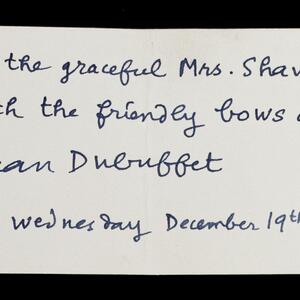 the graceful Mrs. Shaw
the friendly bows
Dubuffet
Wednesday December 19th